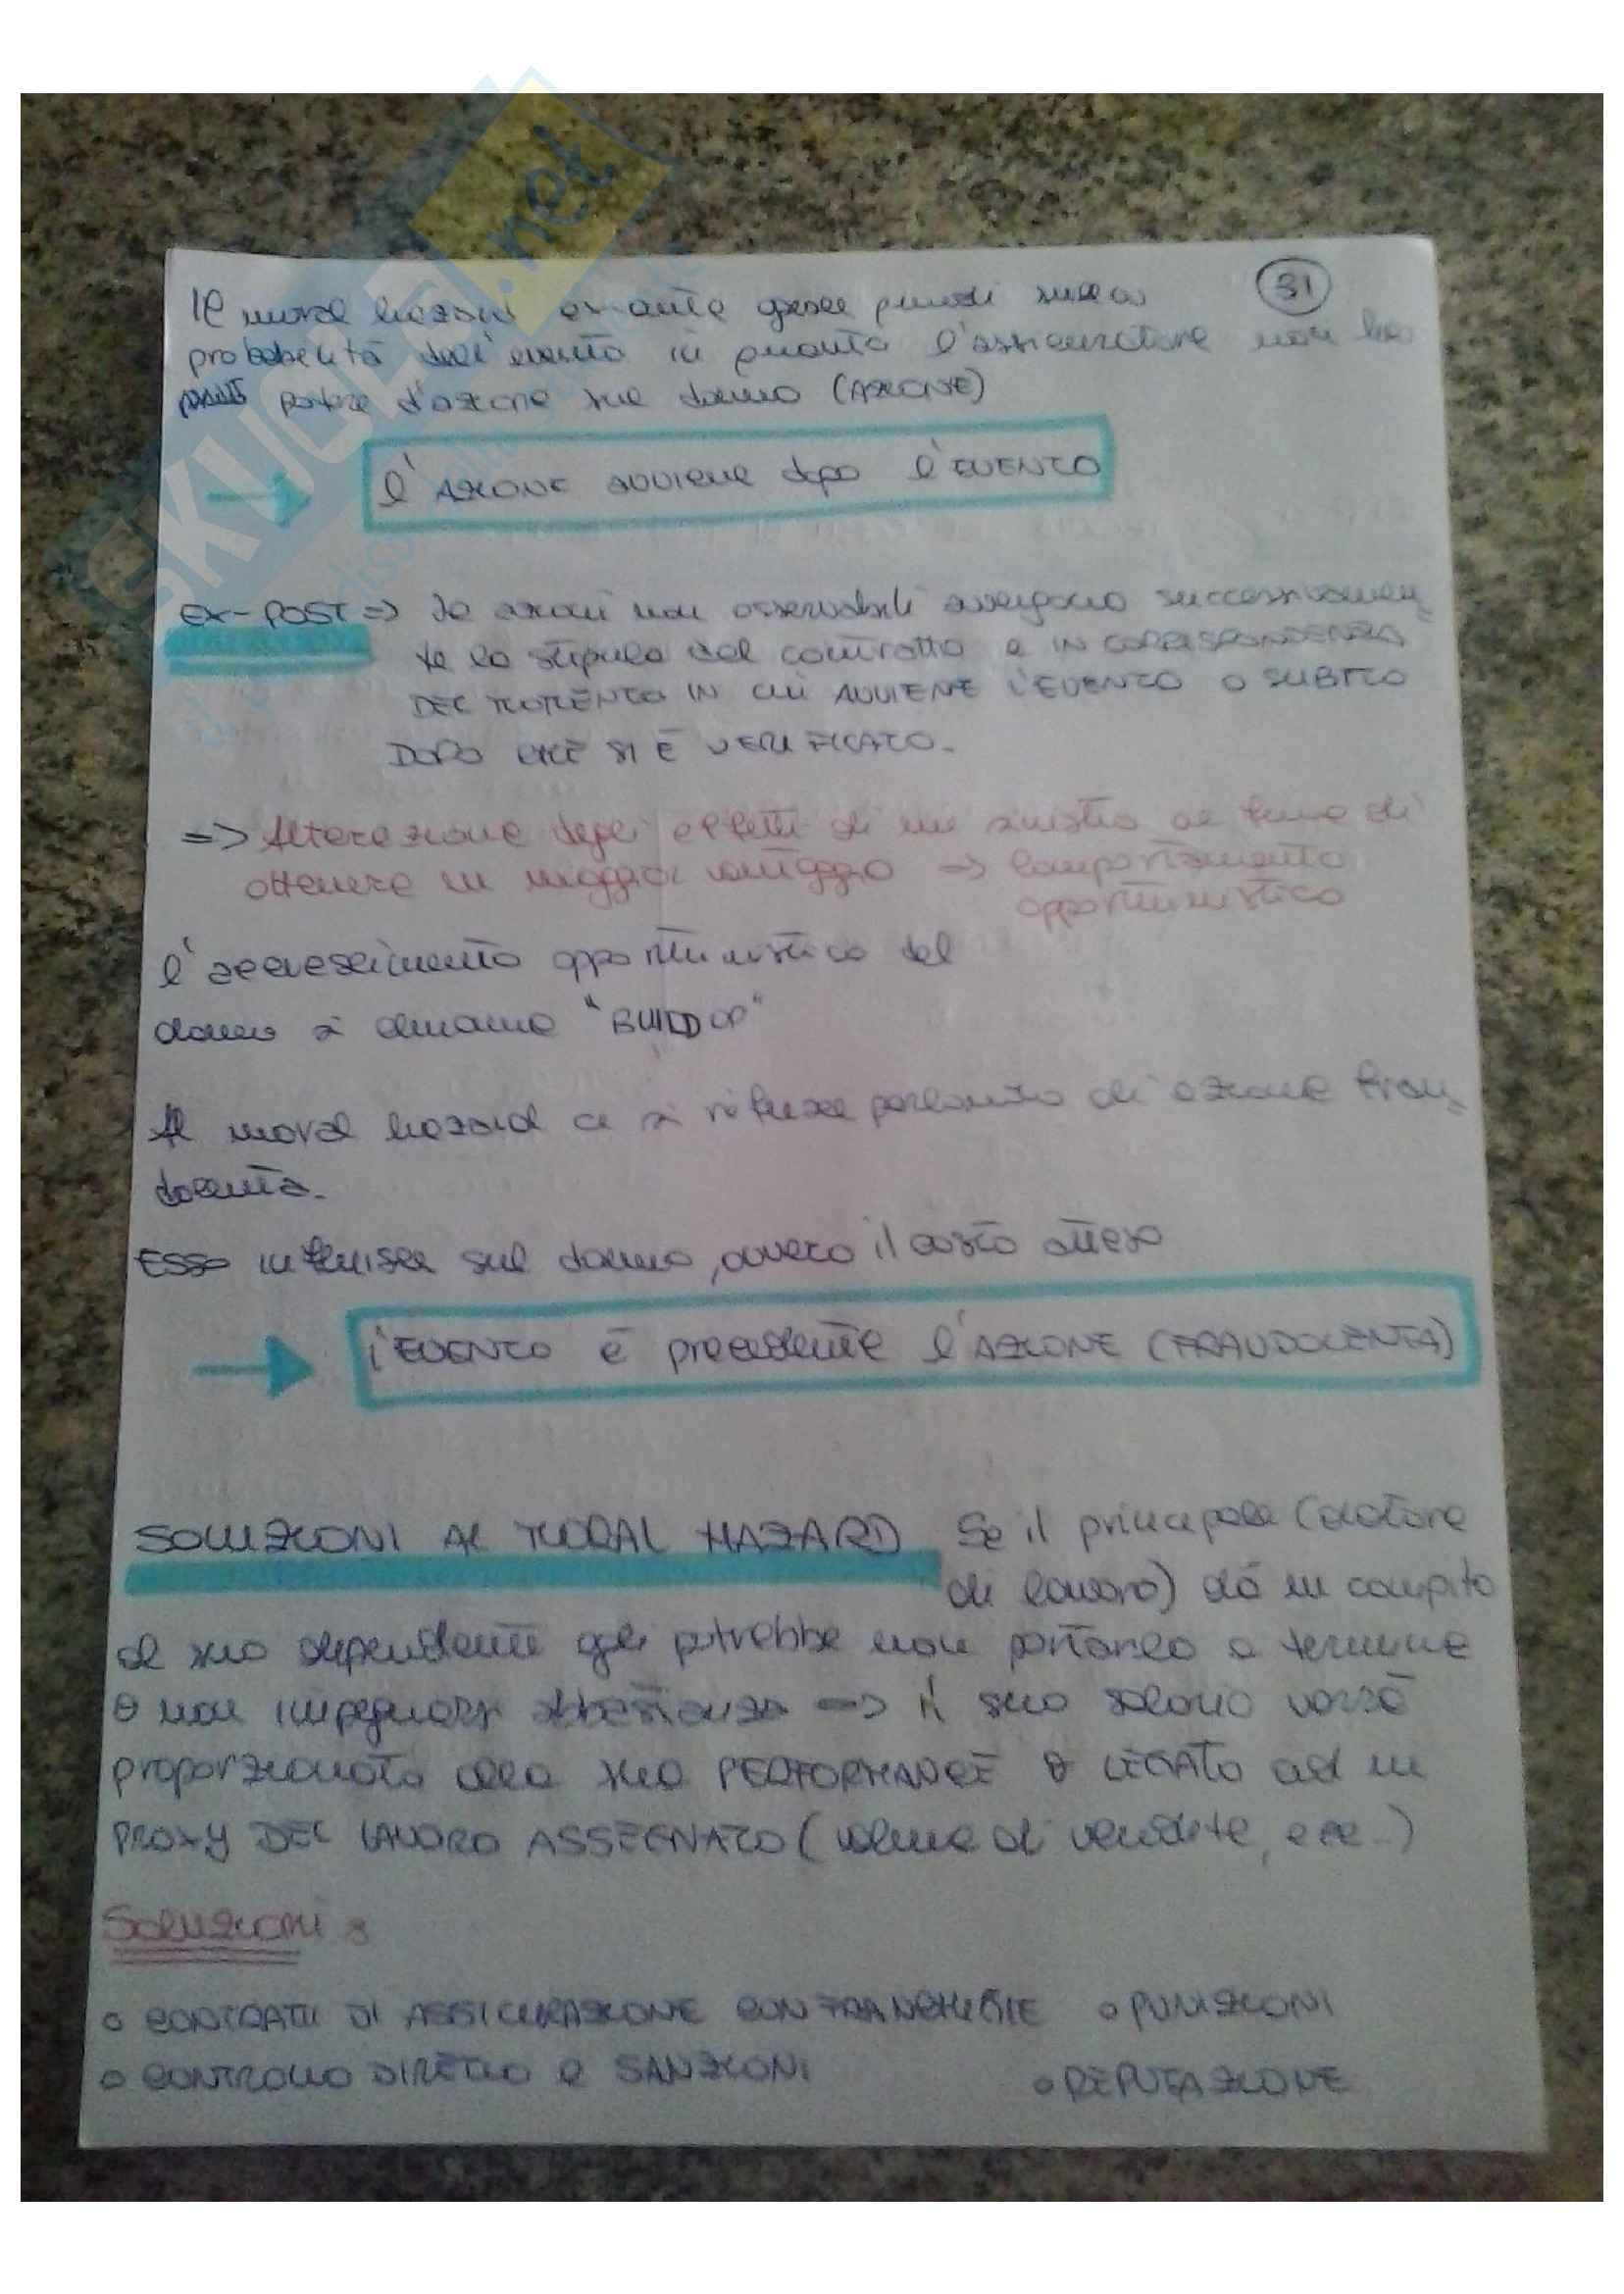 31
Il moral hazard ex ante grava quindi sulla
probabilità dell'evento in quanto l'assicuratore non ha
potere d'azione sul danno (AZIONE)
l'AZIONE avviene dopo l'EVENTO
EX-POST => le azioni non osservabili avvengono successivamen-
te la stipula del contratto e IN CORRISPONDENZA
DEL MOMENTO IN CUI AVVIENE L'EVENTO O SUBITO
DOPO CHE SI È VERIFICATO.
=> Alterazione degli effetti di un sinistro al fine di
ottenere un maggior vantaggio => comportamento
opportunistico
l'accrescimento opportunistico del
danno si chiama "BUILD UP"
Al moral hazard ci si riferisce parlando di azione frau-
dolenta.
ESSO influisce sul danno, ovvero il costo atteso
L'EVENTO è precedente l'AZIONE (FRAUDOLENTA)
SOLUZIONI AL MORAL HAZARD Se il principale (datore
di lavoro) dà un compito
al suo dipendente egli potrebbe non portarlo a termine
o non impegnarsi abbastanza => il suo salario verrà
proporzionato alla sua PERFORMANCE o LEGATO ad un
PROXY DEL LAVORO ASSEGNATO (volume di vendite, ecc..)
Soluzioni:
o CONTRATTI DI ASSICURAZIONE CON FRANCHIGIE o PUNIZIONI
o CONTROLLO DIRETTO e SANZIONI o REPUTAZIONE
SKUOLA.net